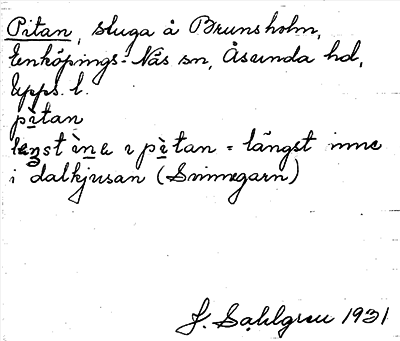 Pitan, stuga å Brunsholm,
Enköpings-Näs sn, Åsunda hd,
Upps. l.
pìtan
leŋst ìne i pìtan = längst inne
i dalkjusan (Svinnegarn)
J. Sahlgren 1931